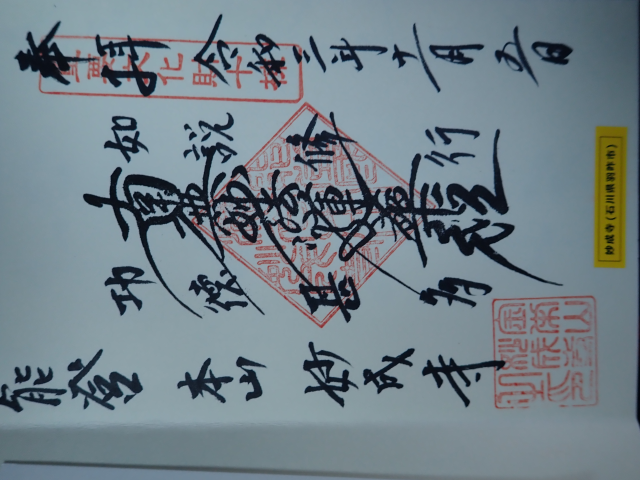 奉拝 令和 年十一月五日
重要文化財十棟
如説修行
南無妙法蓮華経
功徳甚多
能登 本山 妙成寺
妙成寺(石川県羽咋市)